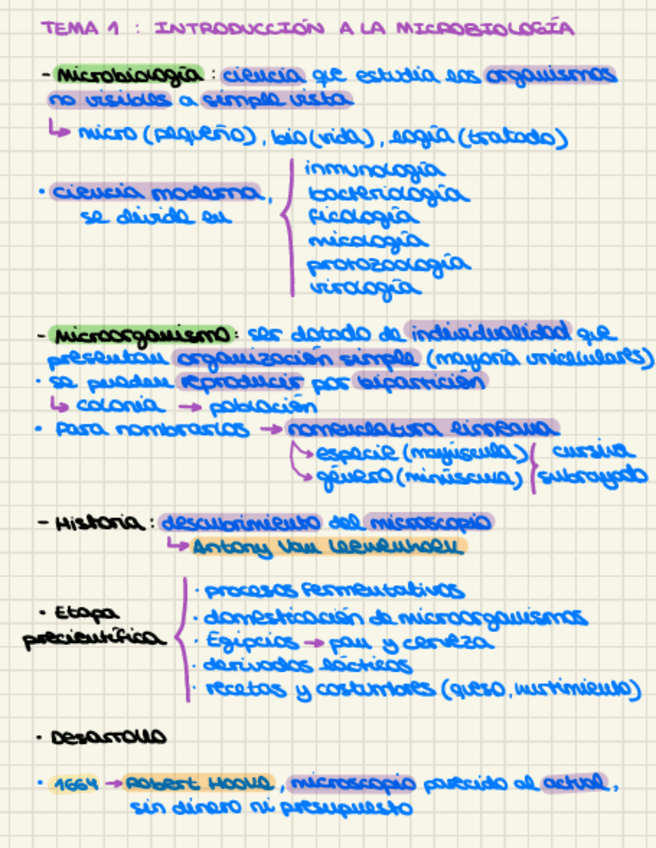 TEMA 1 : INTRODUCCIÓN A LA MICROBIOLOGÍA
- Microbiología : ciencia que estudia los organismos
no visibles a simple vista
↳ micro (pequeño), bio (vida), logía (tratado)
· ciencia moderna,
se divide en
inmunología
bacteriología
ficología
micología
protozoología
virología
- Microorganismo: ser dotado de individualidad que
presentan organización simple (mayoría unicelulares)
· se pueden reproducir por bipartición
↳ colonia → población
· Para nombrarlos → nomenclatura linneana
especie (mayúscula) cursiva
género (minúscula) subrayado
- Historia : descubrimiento del microscopio
↳ Antony Van Leeuwenhoek
· Etapa
precientífica
· procesos fermentativos
· domesticación de microorganismos
· Egipcios → pan y cerveza
· derivados lácticos
· recetas y costumbres (queso, )
· Desarrollo
· 1664 → Robert Hooke, microscopio parecido al actual,
sin dinero ni presupuesto